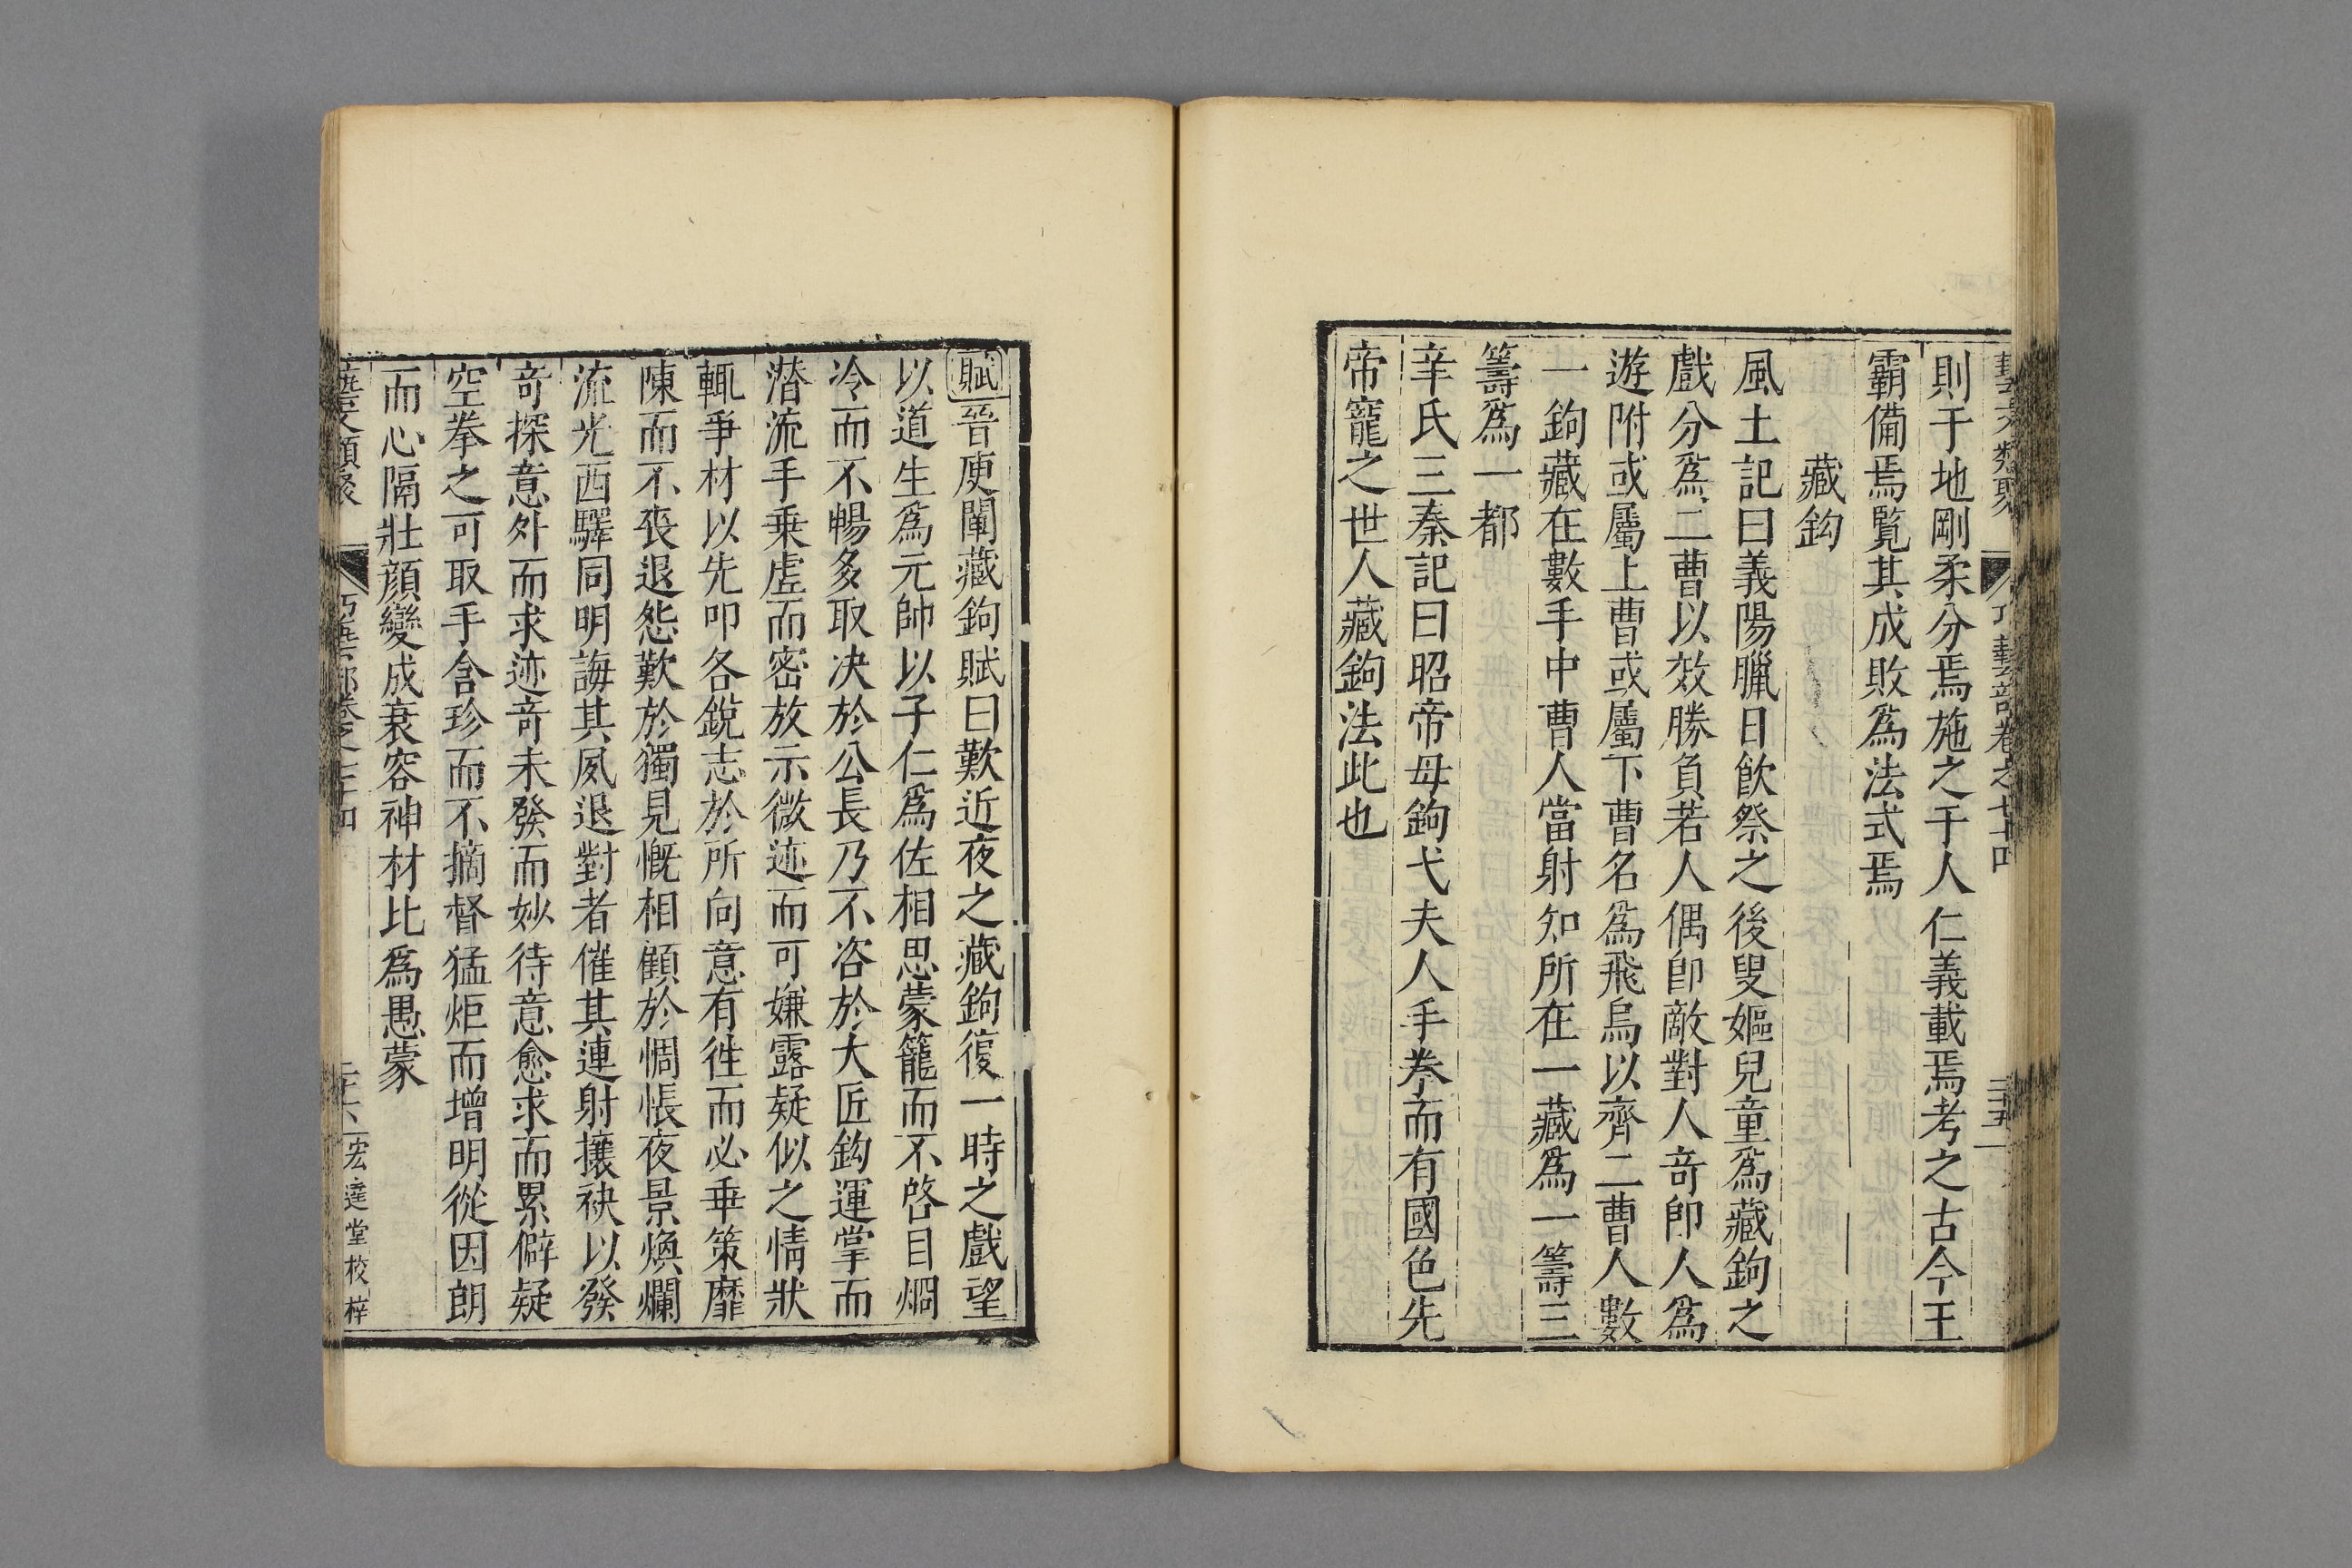 藝文類聚 巧藝部卷之七十四 三十五
則于地剛柔分焉施之于人仁義載焉考之古今王
霸備焉覽其成敗爲法式焉
藏鈎
風土記曰義陽臘日飲祭之後叟嫗兒童爲藏鉤之
戲分爲二曹以效勝負若人偶卽敵對人奇卽人爲
遊附或屬上曹或屬下曹名爲飛鳥以齊二曹人數
一鉤藏在數手中曹人當射知所在一藏爲一籌三
籌爲一都
辛氏三秦記曰昭帝母鉤弋夫人手拳而有國色先
帝寵之世人藏鉤法此也
賦晉庾闡藏鉤賦曰歎近夜之藏鉤復一時之戲望
以道生爲元帥以子仁爲佐相思蒙籠而不啓目烱
冷而不暢多取决於公長乃不咨於大匠鈎運掌而
潜流手乗虛而密放示微迹而可嫌露疑似之情狀
輒爭材以先叩各銳志於所向意有徃而必乖策靡
陳而不喪退怨歎於獨見慨相顧於惆悵夜景煥爛
流光西驛同明誨其夙退對者催其連射攘袂以發
竒探意外而求迹竒未發而妙待意愈求而累僻疑
空拳之可取手含珍而不摘督猛炬而增明從因朗
而心隔壯顔變成衰容神材比爲愚蒙
藝文類聚 巧藝部卷之七十四 三十六 宏達堂校梓